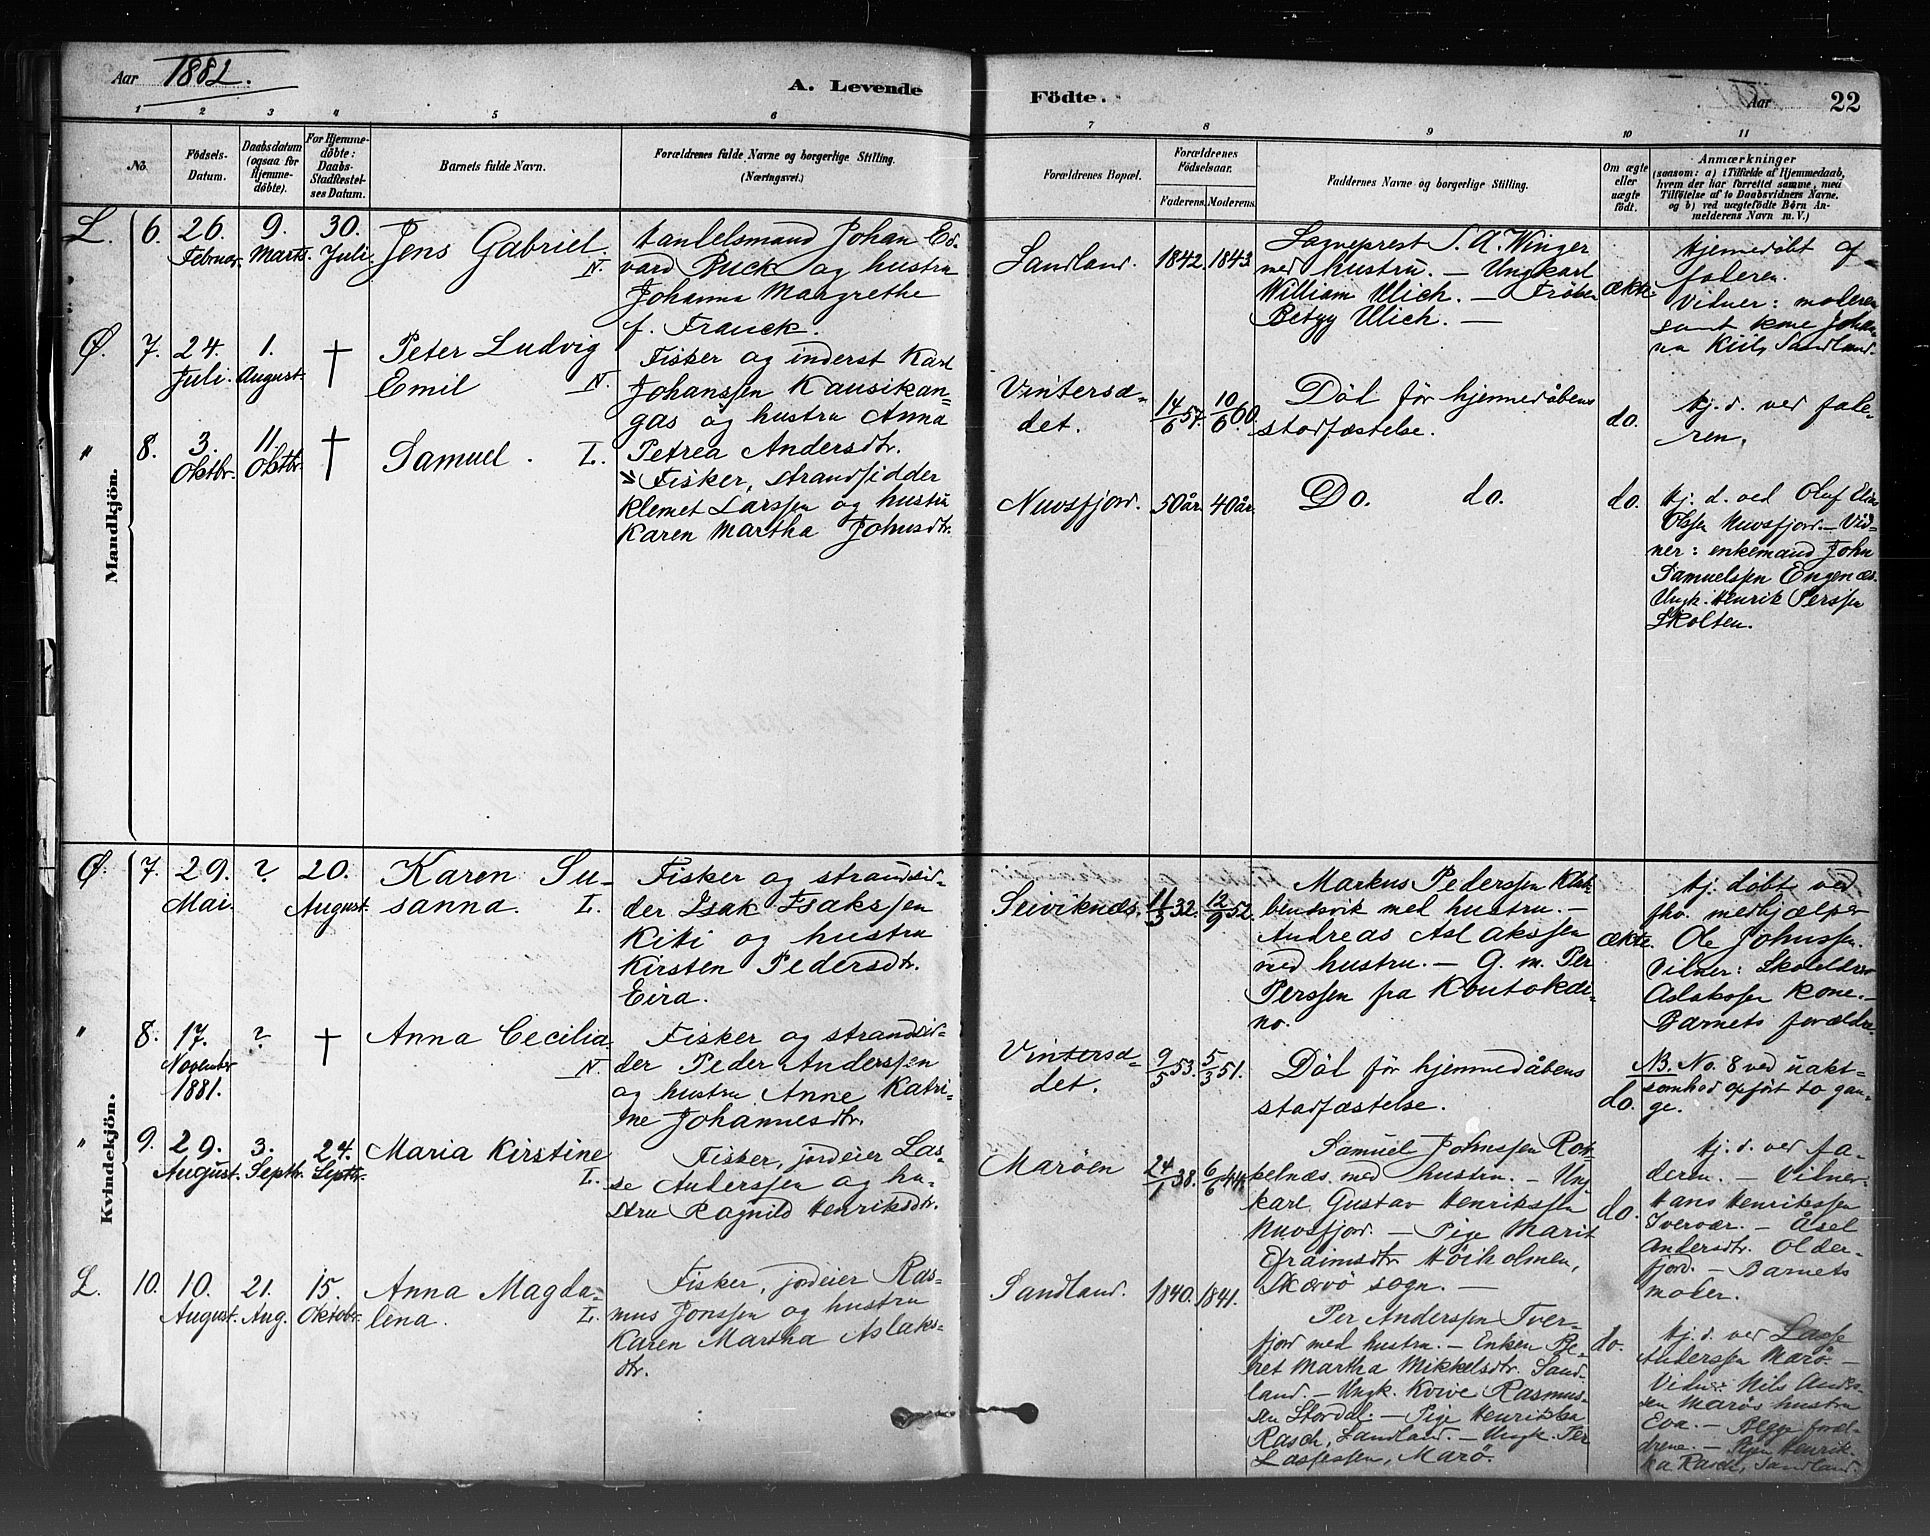 Aar 1882.
A. Levende
Födte.
Aar
22
1 2 3 4 5 6 7 8 9 10 11
No.
Födsels-
Datum.
Daabsdatum
(ogsaa for
Hjemme-
döbte).
For Hjemme-
döbte:
Daabs-
Stadfæstel-
ses Datum.
Barnets fulde Navn.
Forældrenes fulde Navne og borgerlige Stilling.
(Næringsvei.)
Forældrenes Bopæl.
Forældrenes
Födselsaar.
Faderens. Moderens.
Faddernes Navne og borgerlige Stilling.
Om ægte
eller
uægte
født.
Anmærkninger
(saasom: a) i Tilfælde af Hjemmedaab,
hvem der har forrettet samme, med
Tilföielse af to Daabsvidners Navne,
og b) ved uægtefödte Børn An-
melderens Navn m. V.)
Mandkjön.
L. 6. 26. Februar. 9. Marts. 30. Juli
Jens Gabriel.
N.
Handelsmand Johan Ed-
vard Buck og hustru
Johanna Margrethe
f. Franck.
Sandland.
1842. 1843.
Sogneprest S. A. Winger
med hustru. — Ungkarl
William Ulich. — Frøken
Betzy Ulich. —
ækte.
Hjemmedöbt af
faderen.
Vidner: moderen
samt kone Johan-
na Kiil, Sandland.
Ø. 7. 24. Juli. 1. August. †
Peter Ludvig
Emil
N.
Fisker og inderst Karl
Johanssen Kausikan-
gas og hustru Anna
Petrea Andersdtr.
Vintersæ-
det.
14/6 57. 10/6 60.
Död för hjemmedåbens
stadfæstelse.
do.
Hj. d. ved fade-
ren.
" 8. 3. Oktbr. 11. Oktbr. †
Samuel. L.
Fisker, strandsidder
Klemet Larssen og hustru
Karen Martha Johnsdtr.
Nuvsfjord.
50 år. 40 år.
Do. do.
do.
Hj. d. ved Oluf Elias
Olssen Nuvsfjord. — Vid-
ner: enkemand John
Samuelssen Engenæs.
Ungk. Henrik Perssen
Skolten.
Kvindekjön.
Ø. 7. 29. Mai. ? 20. August.
Karen Su-
sanna. L.
Fisker og strandsid-
der Isak Isakssen
Kiti og hustru
Kirsten Pedersdtr.
Eira.
Seiviknæs.
11/3 32. 12/9 52.
Markus Pederssen
med hustru. —
Andreas Aslakssen
med hustru. — G. m. Per
Perssen fra Koutokæi-
no.
ækte.
Hj. döbt ved
fhv. medhjælper
Ole Johnssen.
Vidner:
Aslakssen kone. —
Barnets forældre.
" 8. 17. November 1881. ? †
Anna Cecilia.
N.
Fisker og strandsid-
der Peder Anderssen
og hustru Anne Katri-
ne Johannesdtr.
Vintersæ-
det.
9/5 53. 5/3 51.
Död för hjemmedåbens
stadfæstelse.
do.
NB. No. 8 ved uakt-
somhed opfört to gan-
ge.
" 9. 29. August. 3. Septbr. 24. Septbr.
Maria Kirstine
L.
Fisker, jordeier Las-
se Anderssen og hu-
stru Ragnild Henriksdtr.
Marøen
24/1 38. 6/6 44.
Samuel Johnssen Rot-
kelnæs med hustru. — Ung-
karl Gustav Henrikssen
Nuvsfjord. — Pige Marit
Efraimsdtr Höiholmen,
Skærvö sogn. —
do.
Hj. d. ved fa-
deren. — Vidner
Hans Henrikssen
Tverver. — Åsel
Andersdtr. Older-
fjord. — Barnets
moder.
L. 10. 10. August. 21. Aug. 15. Oktober.
Anna Magda-
lena. L.
Fisker, jordeier Ras-
mus Jonssen og hustru
Karen Martha Aslaks-
dtr.
Sandland.
1840. 1841.
Per Anderssen Tver-
fjord med hustru. — Enken Be-
ret Martha Mikkelsdtr Sand-
land. — Ungk. Kvive Rasmus-
sen Stordal. — Pige Henrikka
Rasch, Sandland. — Ungk. Per
Lassessen, Marø.
do.
Hj. d. ved Lasse
Anderssen Marø. —
Vidner: Nils Anders-
sen Marøs hustru
Eva. — Begge foræl-
drene. — Pigen Henrik-
ka Rasch, Sandland.